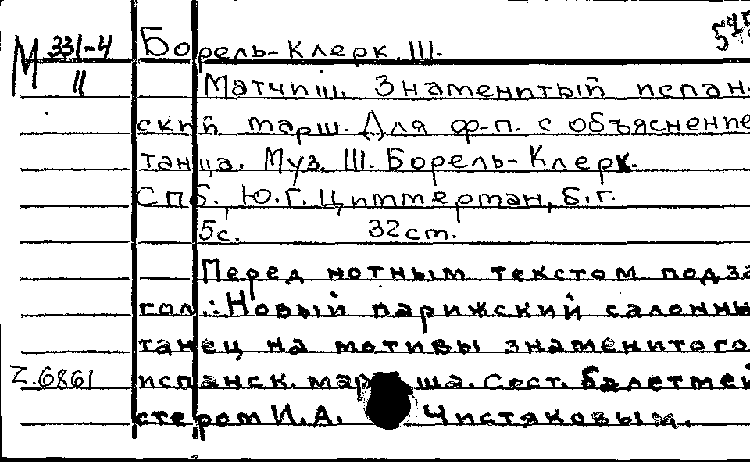 М 331-4
11
Борель-Клерк, Ш.
Матчиш. Знаменитый испан-
ский марш. Для ф-п. с объяснение
танца. Муз. Ш. Борель-Клерк.
СПб. Ю.Г. Циммерман, б.г.
5с. 32см.
Перед нотным текстом подза
гол.: Новый парижский салонны
танец на мотивы знаменитого
Z.6861 испанск. марша. Сост. балетмей
стером И.А. Чистяковым.